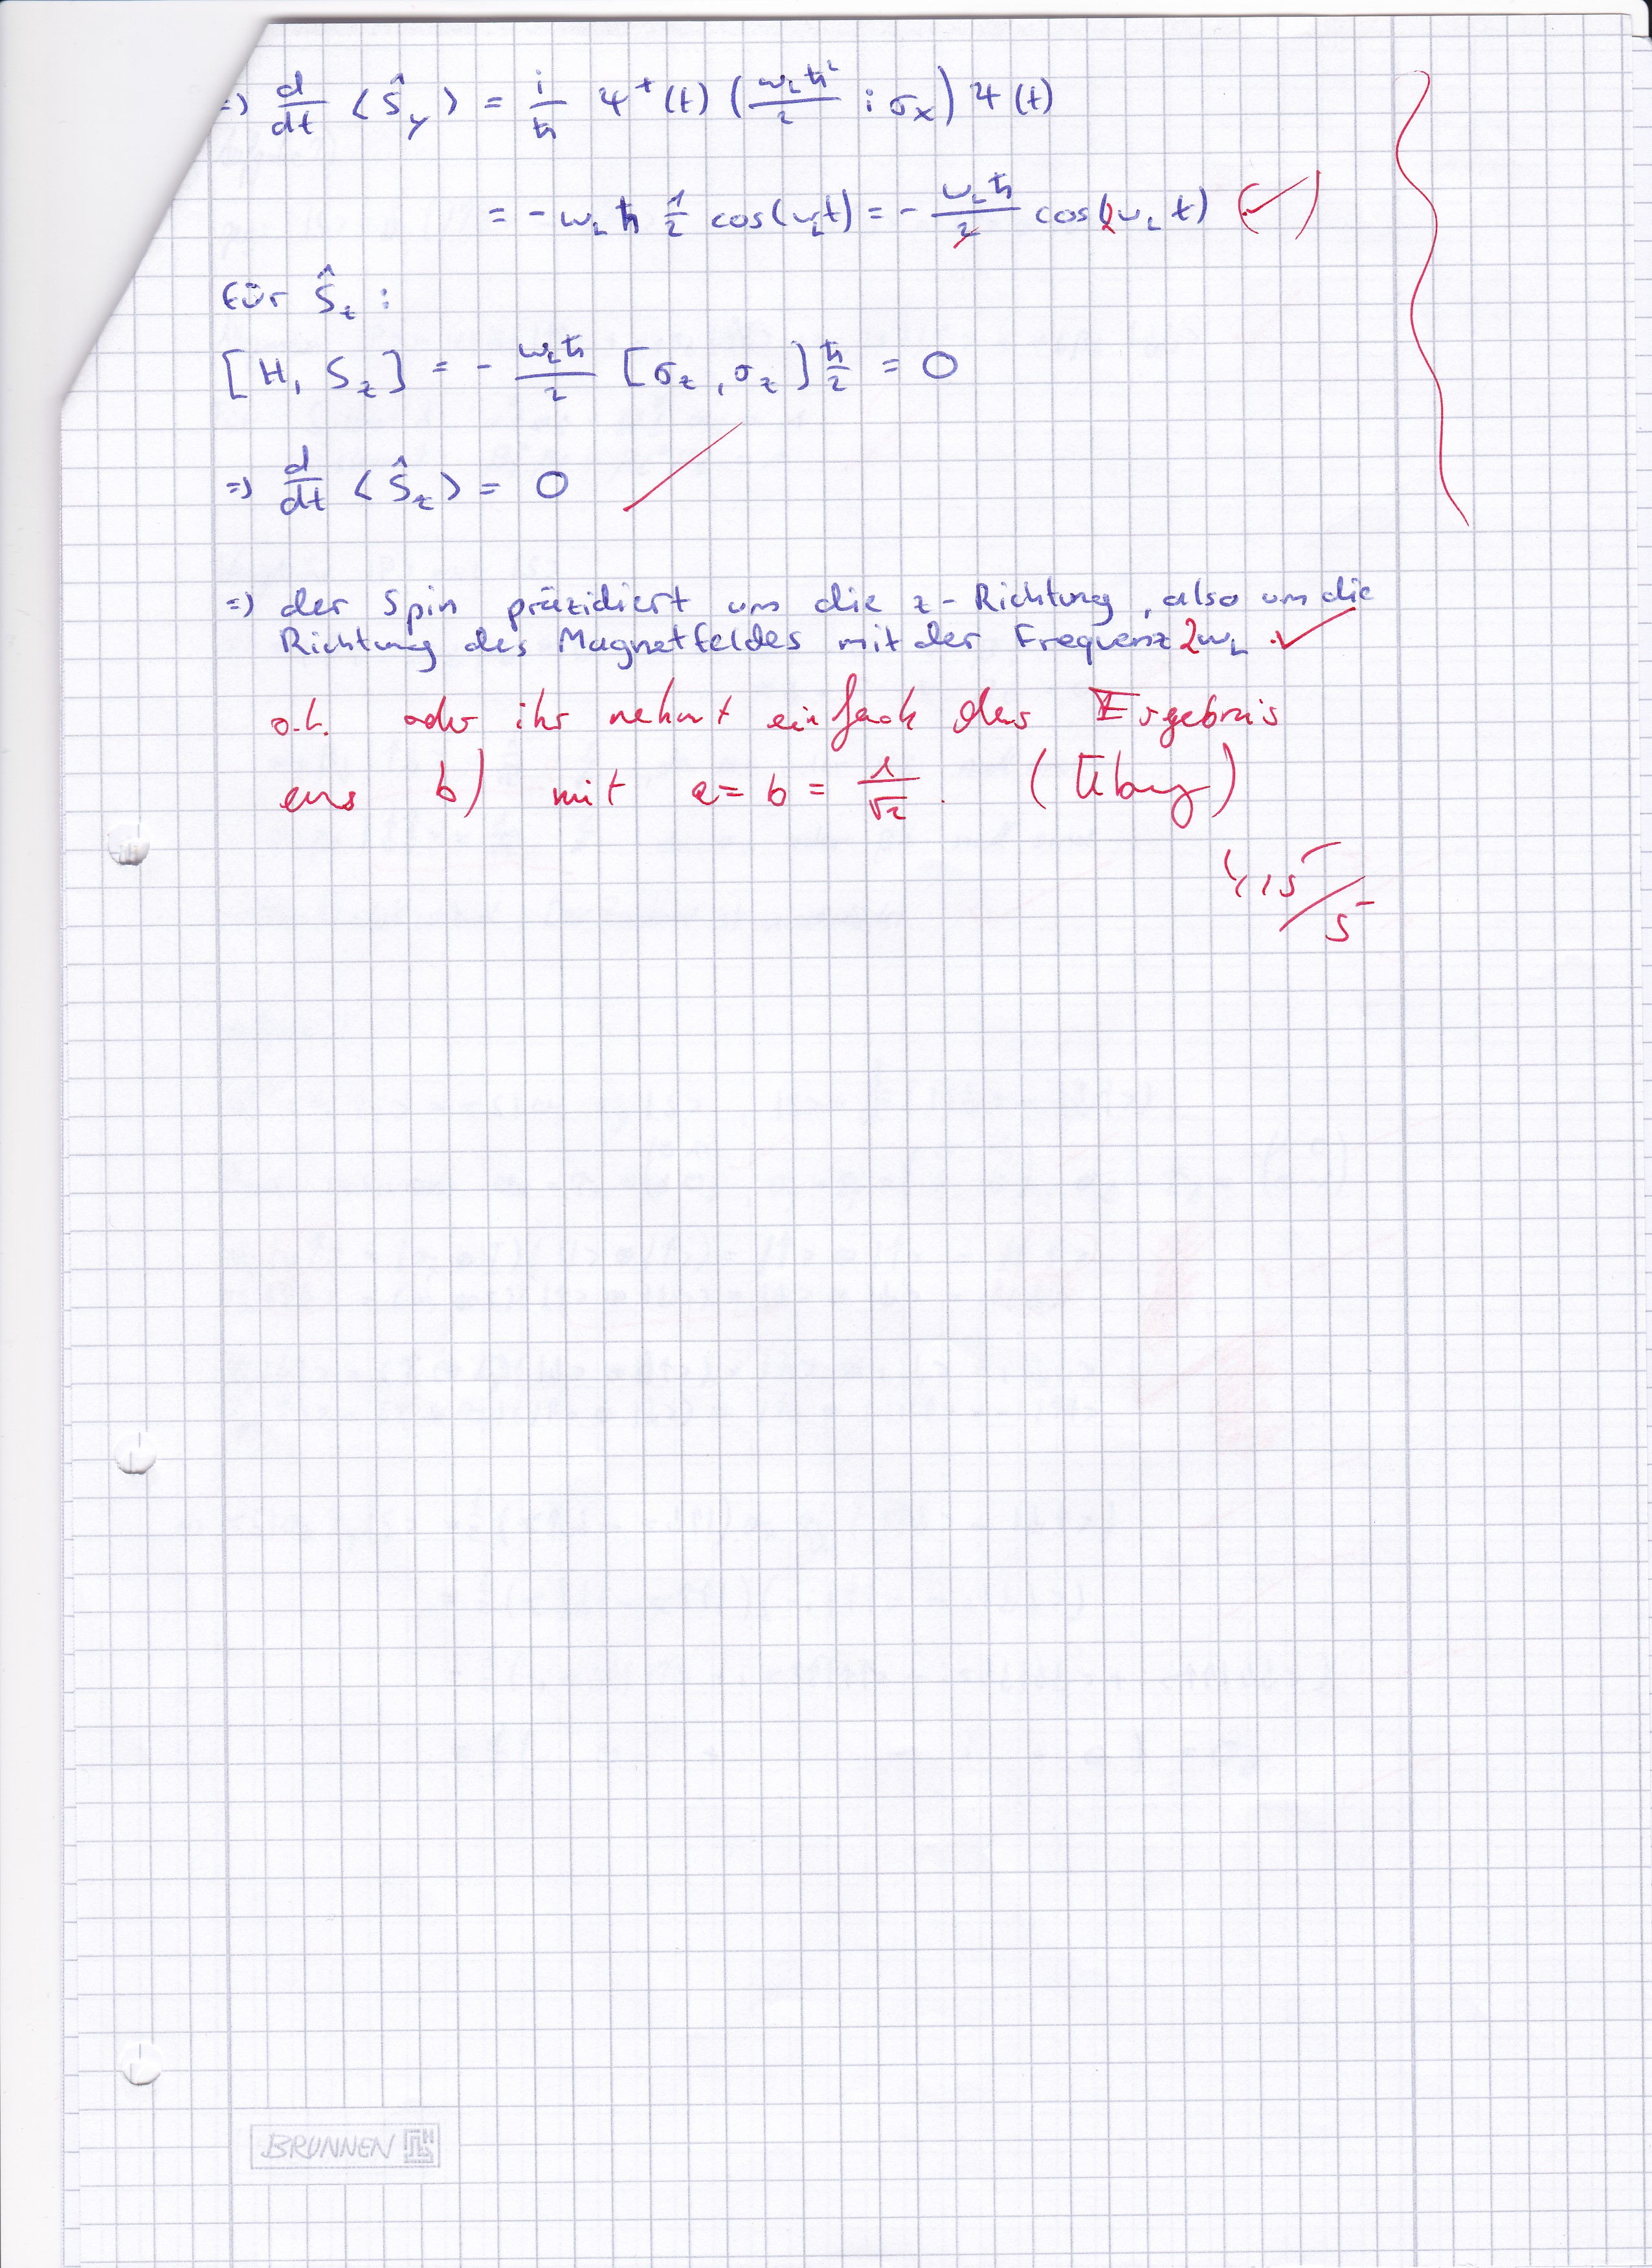 =) d/dt ⟨Ŝ_y⟩ = i/ħ Ψ⁺(t) (ω_L ħ²/2 i σ_x) Ψ(t)
= - ω_L ħ 1/2 cos(ω_L t) = - ω_L ħ/2 cos(2ω_L t) (✓)
Für Ŝ_z :
[H, S_z] = - ω_L ħ/2 [σ_z, σ_z] ħ/2 = 0
=) d/dt ⟨Ŝ_z⟩ = 0
=) der Spin präzidiert um die z-Richtung, also um die
Richtung des Magnetfeldes mit der Frequenz 2ω_L . ✓
oder ihr nehmt einfach das Ergebnis
aus b) mit a = b = 1/√2 . (Übung)
4,5/5
BRUNNEN